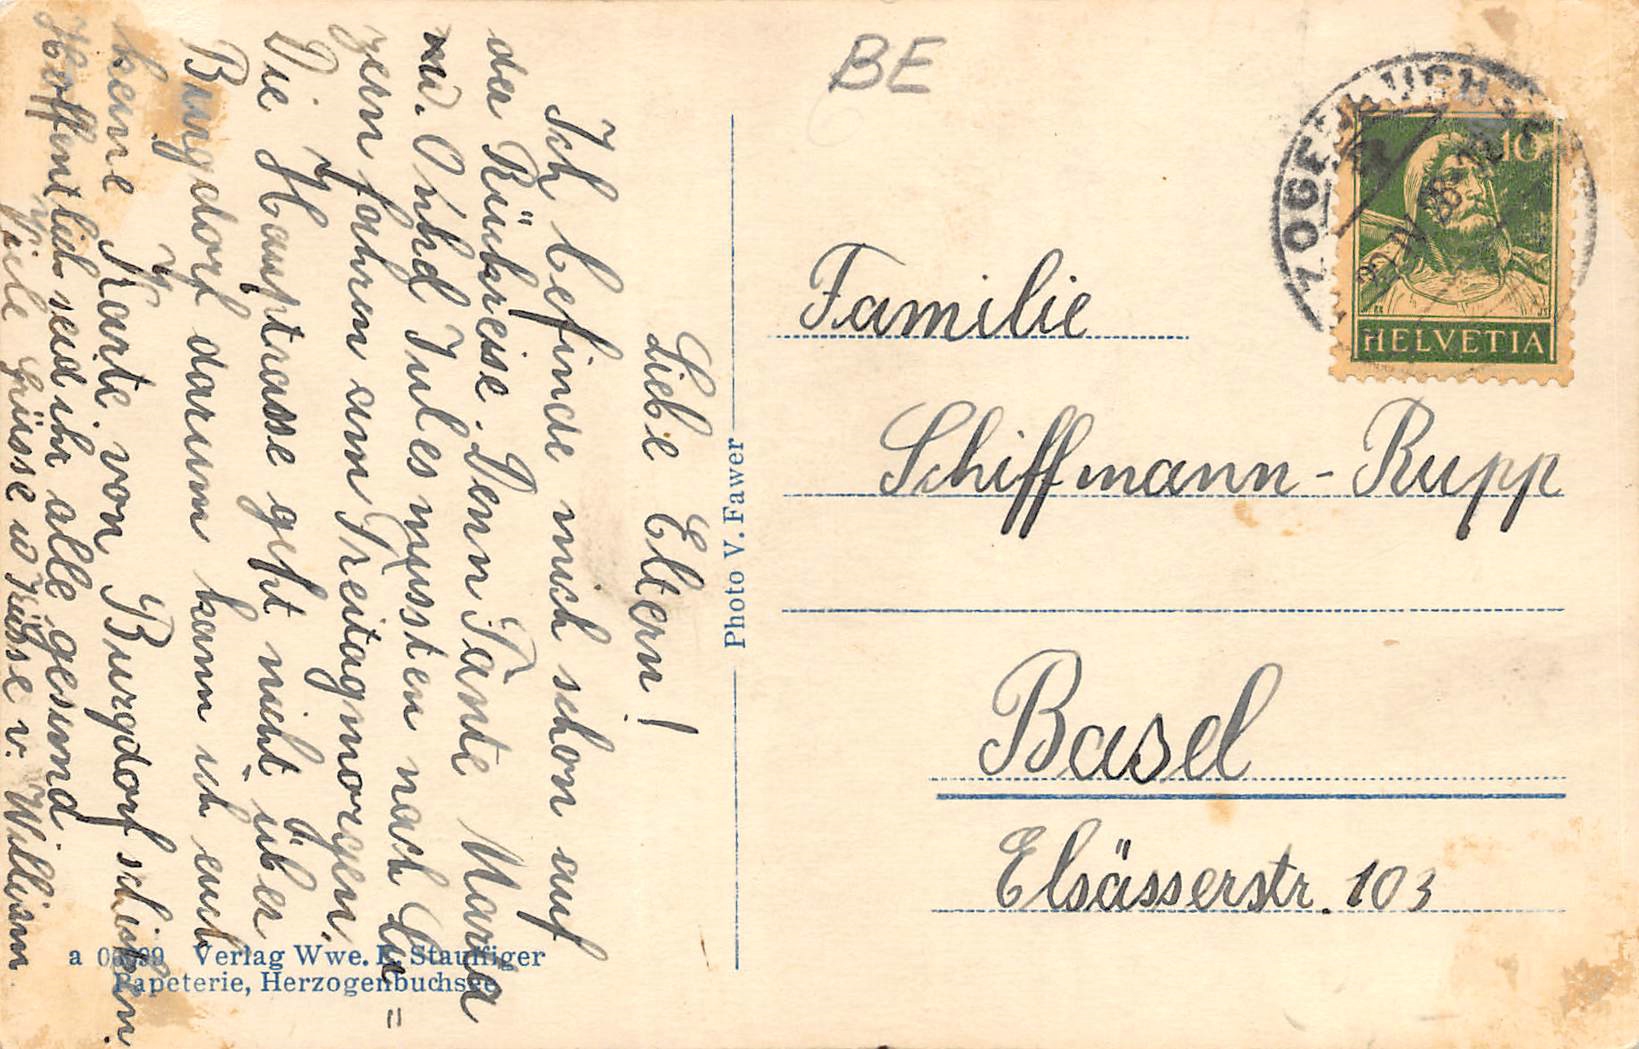 BE
HERZOGENBUCHSEE
10
HELVETIA
Familie
Schiffmann - Rupp
Basel
Elsässerstr. 103
Photo V. Fawer
Liebe Eltern!
Ich befinde mich schon auf
der Rückreise. Denn Tante Maria
u. Onkel Jules müssten nach Lu=
zern fahren am Freitagmorgen.
Die Hauptrasse geht nicht über
Burgdorf darum kann ich euch
keine Karte von Burgdorf schicken.
Hoffentlich seid ihr alle gesund
Viele Grüsse u Küsse v. William
Verlag Wwe. E. Stauffiger
Papeterie, Herzogenbuchsee